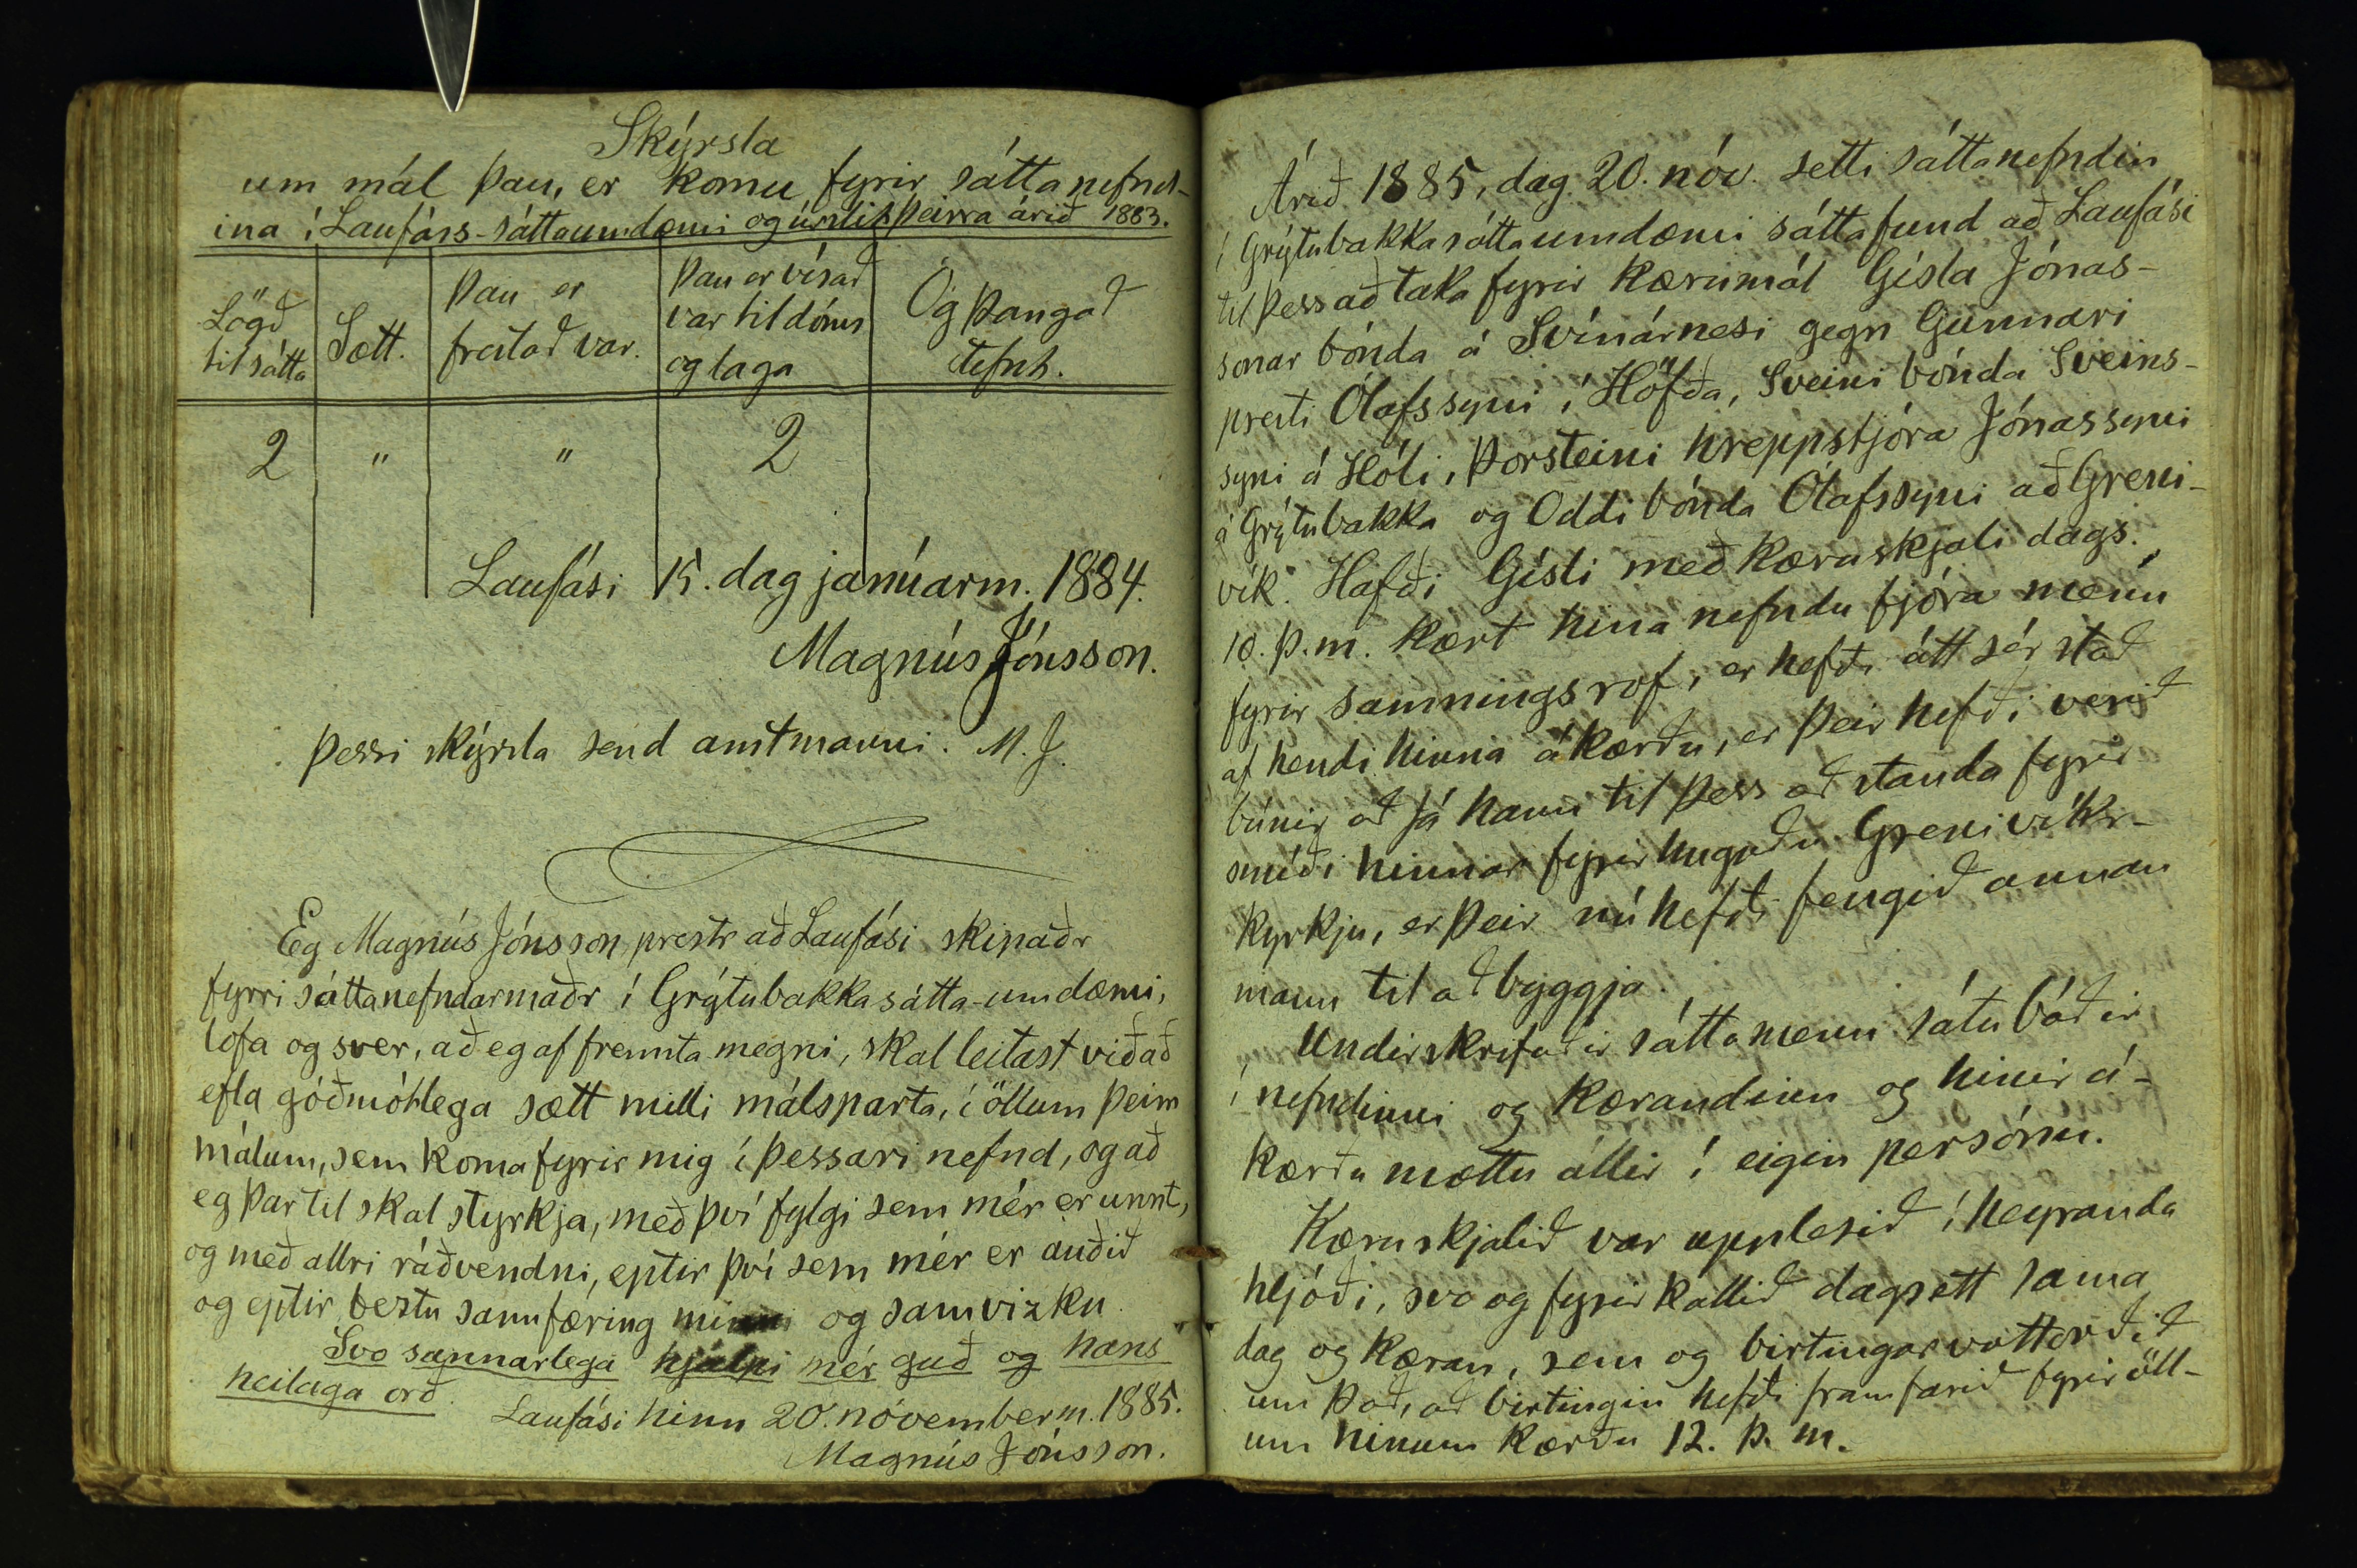 Skýrsla
um mál þau, er komu fyrir sáttanefnd-
ina í Laufáss-sáttaumdæmi og úrslit þeirra árið 1883.
Lögð til sátta
Sætt.
Þau er frestað var.
Þau er vísað var til dóms og laga
Og þangað stefnt.
2 " " 2
Laufási 15. dag janúarm. 1884.
Magnús Jónsson.
Þessi skýrsla send amtmanni. M. J.
Eg Magnús Jónsson, prestr að Laufási skipaðr
fyrri sáttanefndarmaðr í Grýtubakka sátta-umdæmi,
lofa og sver, að eg af fremsta megni, skal leitast við að
efla góðmótlega sætt milli málsparta, í öllum þeim
málum, sem koma fyrir mig í þessari nefnd, og að
eg þar til skal styrkja, með því fylgi sem mér er unnt,
og með allri ráðvendni, eptir því sem mér er auðið
og eptir beztu sannfæring minni og samvizku.
Svo sannarlega hjálpi mér guð og hans
heilaga orð.
Laufási hinn 20. nóvemberm. 1885.
Magnús Jónsson.
Árið 1885, dag 20. nóv. setti sáttanefndin
í Grýtubakkasáttaumdæmi sáttafund að Laufási
til þess að taka fyrir kærumál Gísla Jónas-
sonar bónda á Svínárnesi gegn Gunnari
presti Ólafssyni í Höfða, Sveini bónda Sveins-
syni á Hóli, Þorsteini hreppstjóra Jónassyni
á Grýtubakka og Oddi bónda Ólafssyni að Greni-
vík. Hafði Gísli með kæruskjali dags.
10. þ.m. kært hina nefndu fjóra menn
fyrir samningsrof, er hefði átt sér stað
af hendi hinna ákærðu, er þeir hefði verið
búnir að fá hann til þess að standa fyrir
smíði hinnar fyrirhuguðu Grenivíkr-
kyrkju, er þeir nú hefði fengið annan
mann til að byggja.
Undirskrifaðir sáttamenn sátu báðir
í nefndinni og kærandinn og hinir á-
kærðu mættu allir í eigin persónu.
Kæruskjalið var upplesið í heyranda
hljóði, svo og fyrirkallið dagsett sama
dag og kæran, sem og birtingarvottorðið
um það, að birtingin hefði framfarið fyrir öll-
um hinum kærðu 12. þ. m.